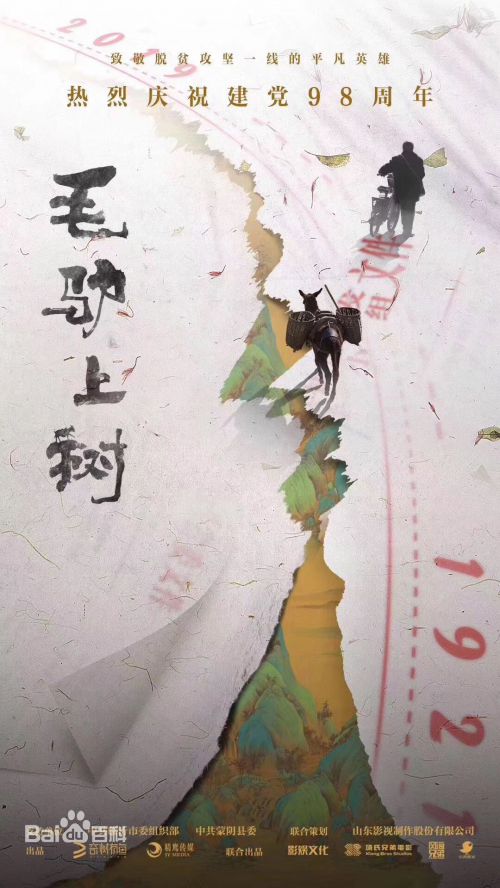 2019
致敬脱贫攻坚一线的平凡英雄
热烈庆祝建党98周年
毛驴上树
文件
组
1921
Bai百科
市委组织部
中共蒙阴县委
联合策划
山东影视制作股份有限公司
出品
精鹰传媒
JY MEDIA
联合出品
影娱文化
项氏兄弟电影
Xiang Bros Studios